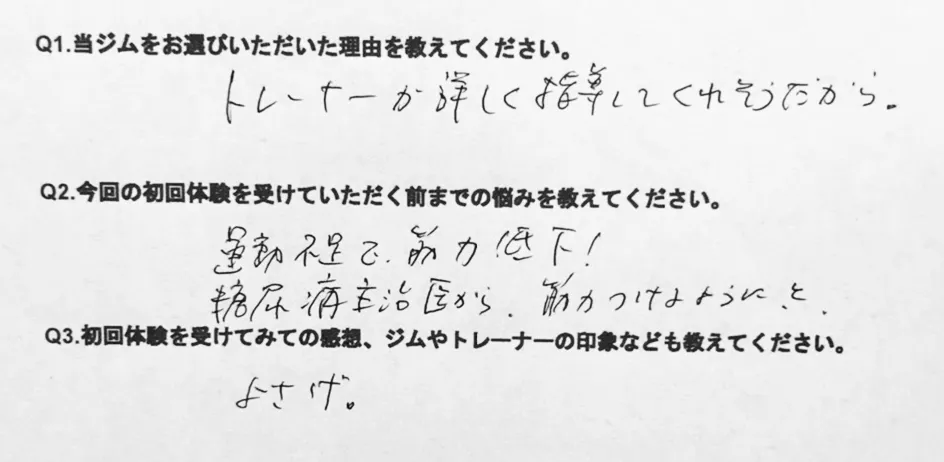 Q1.当ジムをお選びいただいた理由を教えてください。
トレーナーが詳しく指導してくれそうだから。
Q2.今回の初回体験を受けていただく前までの悩みを教えてください。
運動不足で、筋力低下！
糖尿病主治医から、筋力つけるようにと、
Q3.初回体験を受けてみての感想、ジムやトレーナーの印象なども教えてください。
よさげ。